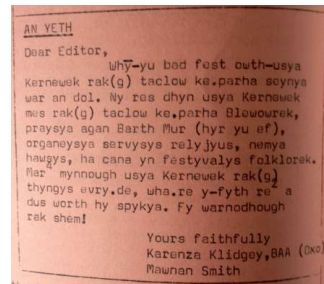 AN YETH
Dear Editor,
Why-yu bad fest owth-usya
Kernewek rak(g) taclow ke.parha seynya
war an dol. Ny res dhyn usya Kernewek
mes rak(g) taclow ke.parha Blewowrek,
praysya agan Barth Mur (hyr yu ef),
organeysya servysys relyjyus, nemya
hawsys, ha cana yn festyvalys folklorek.
Mar4 mynnough usya Kernewek rak(g)
thyngys evry.de, wha.re y-fyth re2 a
dus worth hy spykya. Fy warnodhough
rak shem!
Yours faithfully
Karenza Klidgey,BAA (Oxo)
Mawnan Smith